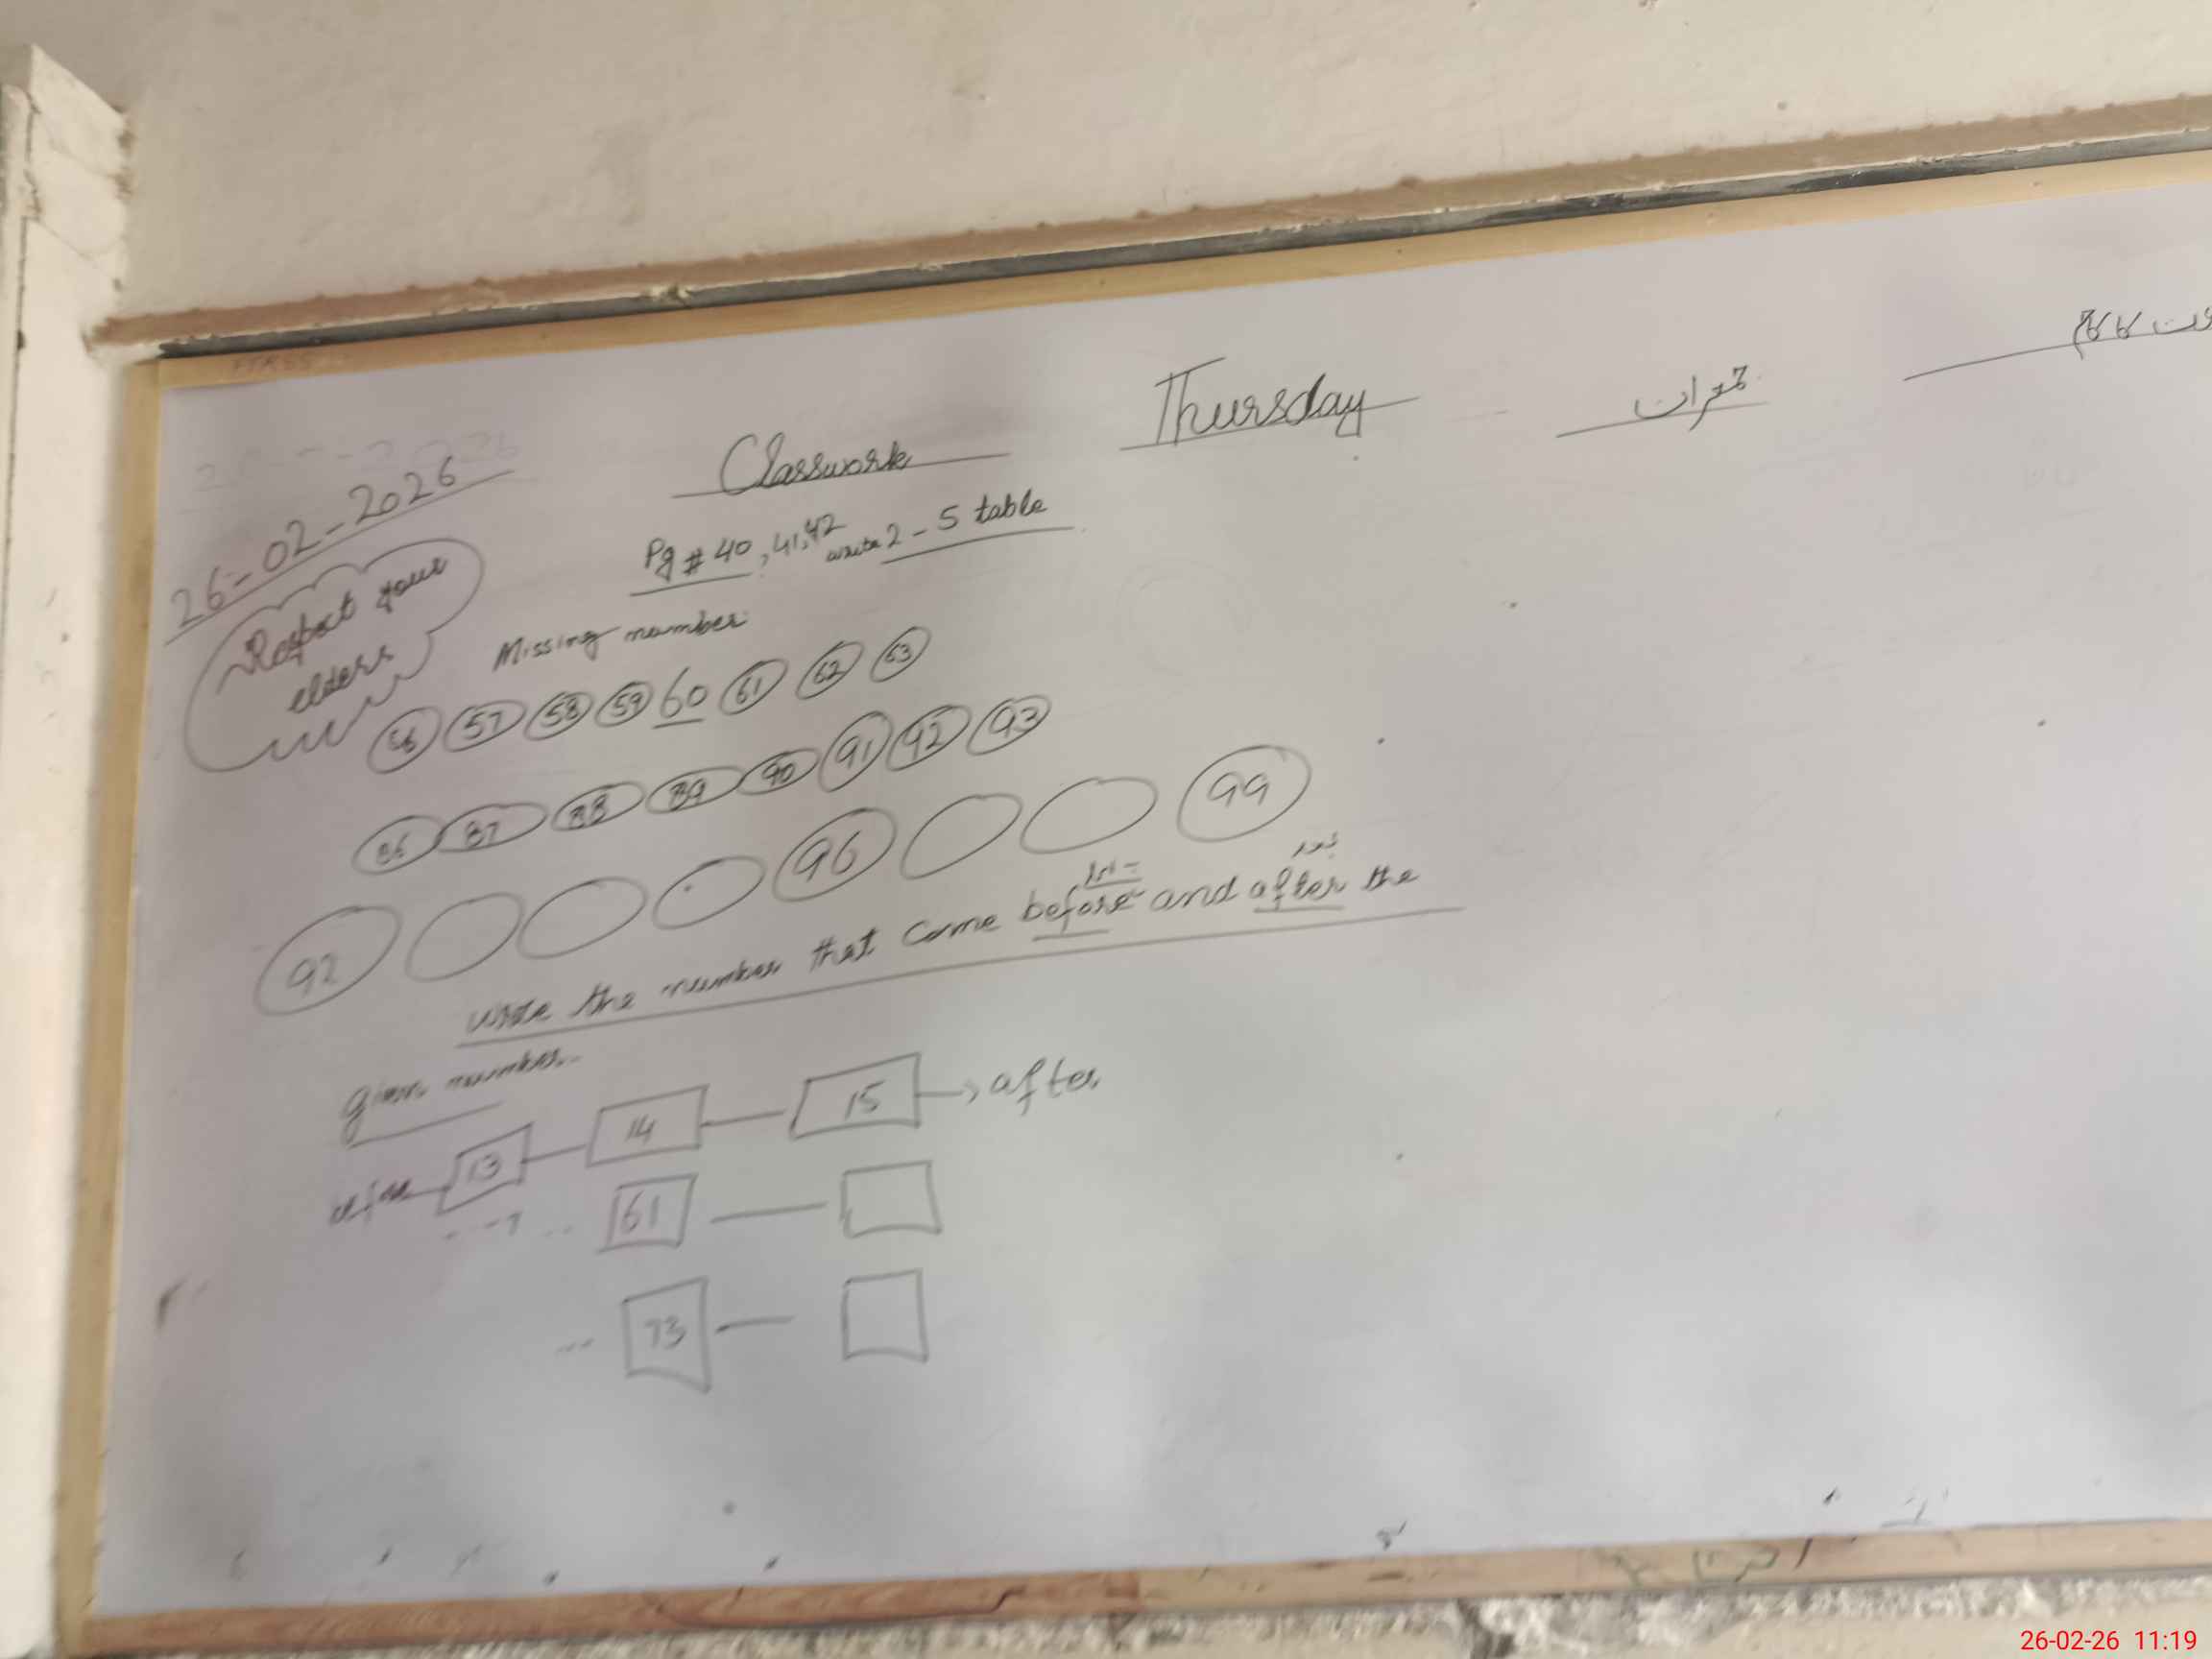 Thursday
جمعرات
کا کام
Classwork
26-02-2026
Pg # 40, 41, 42 write 2-5 table
Respect your
elders
Missing number
56 57 58 59 60 61 62 63
86 87 88 89 90 91 92 93
92 96 99
بعد
write the number that come before and after the
given number.
before 13 14 15 after
61
73
26-02-26 11:19